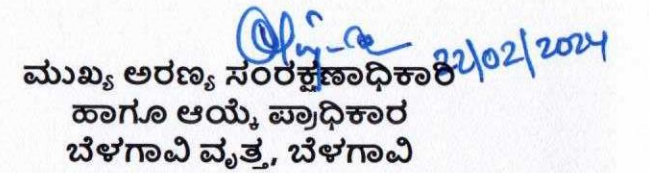 22/02/2024
ಮುಖ್ಯ ಅರಣ್ಯ ಸಂರಕ್ಷಣಾಧಿಕಾರಿ
ಹಾಗೂ ಆಯ್ಕೆ ಪ್ರಾಧಿಕಾರ
ಬೆಳಗಾವಿ ವೃತ್ತ, ಬೆಳಗಾವಿ